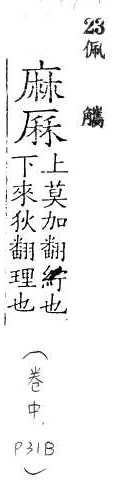 23
佩觿
麻厤
上莫加翻紵也
下來狄翻理也
(巻中,
P31B)